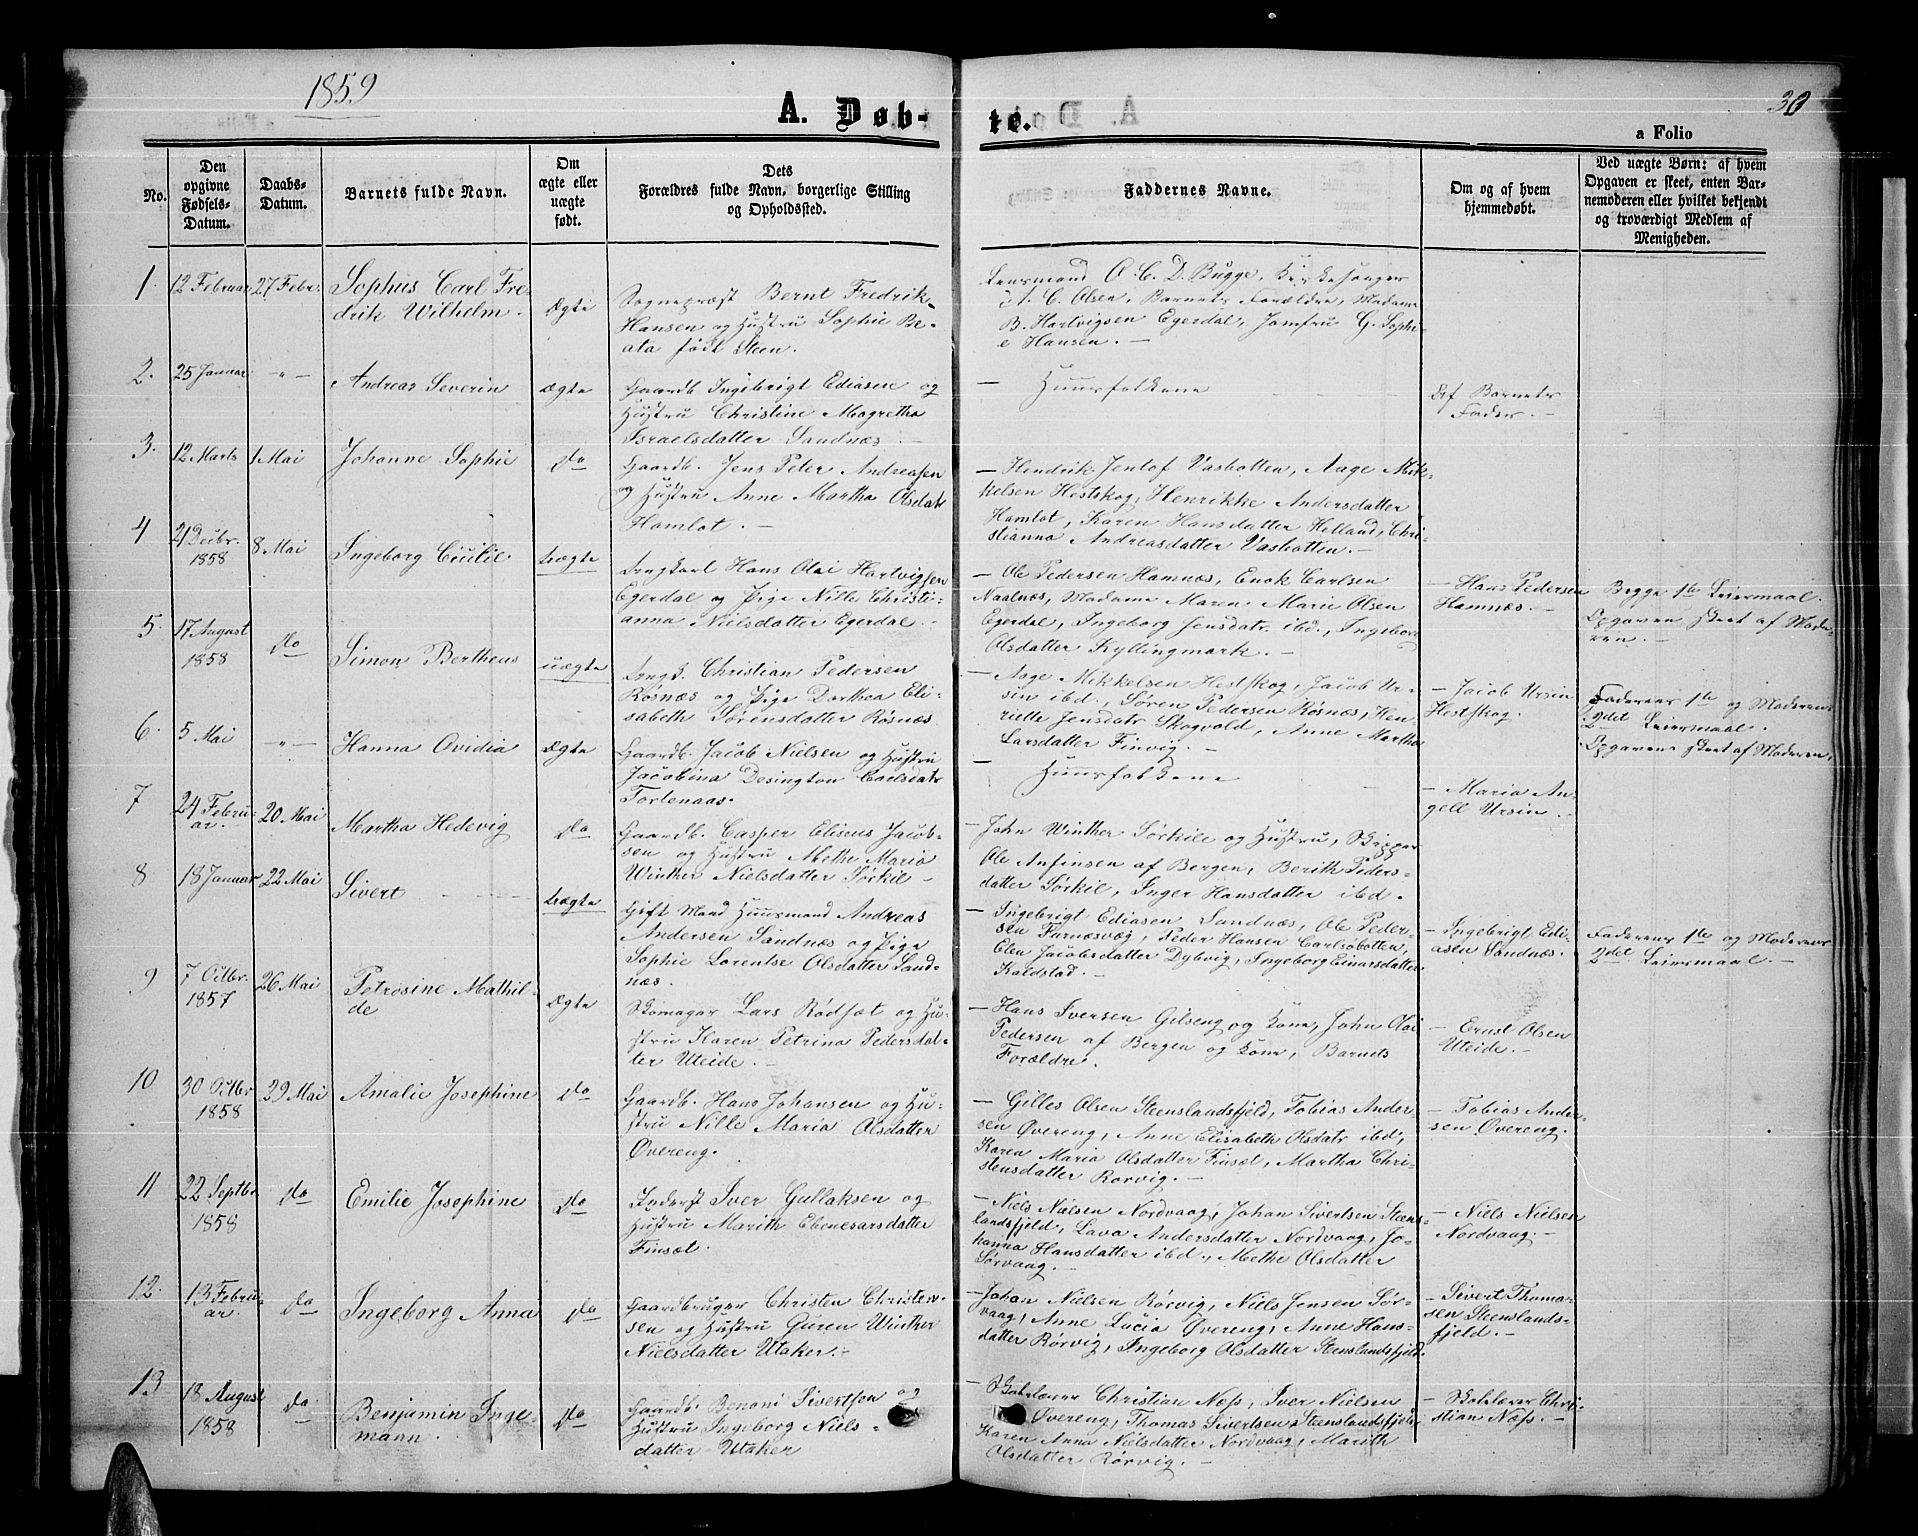 1859
A. Døb-
te.
30
a Folio
No.
Den opgivne Fødsels-Datum.
Daabs-Datum.
Barnets fulde Navn.
Om ægte eller uægte født.
Dets Forældres fulde Navn, borgerlige Stilling og Opholdssted.
Faddernes Navne.
Om og af hvem hjemmedøbt.
Ved uægte Børn: af hvem Opgaven er skeet, enten Bar-nemoderen eller hvilket bekjendt og troværdigt Medlem af Menigheden.
1.
12 Februar
27 Febr.
Sophus Carl Fre-
drik Wilhelm.
Ægte
Sognepræst Bernt Fredrik
Hansen og Hustru Sophie Be-
ata født Steen.
Lensmand A. C. D. Bugge, Kirkesanger
C. Olsen, Barnets Forældre, Madame
B. Hartvigsen Egerdal, Jomfru G. Sophi-
e Hansen. —
2.
25 Januar
— " —
Andreas Severin
ægte
Gaardb. Ingebrigt Ediasen og
Hustru Christine Magretha
Israelsdatter Sandnæs. —
— Huusfolkene
Af Barnets
Fader. —
3.
12 Marts
1 Mai
Johanne Sophie
do
Gaardb. Jens Peter Andreasen
og Hustru Anne Martha Olsdatr
Hamlot. —
— Hendrik Jentof Vasbotten, Aage Mik-
kelsen Hestskog, Henrikke Andersdatter
Hamlot, Karen Hansdatter Helland, Chri-
stianna Andreasdatter Vasbotten. —
4
21 Decbr.
1858
8 Mai
Ingeborg Cicilie
uægte
Ungkarl Hans Olai Hartvigsen
Egerdal og Pige Nille Christi-
anna Nielsdatter Egerdal. —
— Ole Pedersen Hamnæs, Enok Carlsen
Naalnæs, Madame Maren Marie Olsen
Egerdal, Ingeborg Jensdatr. ibd., Ingeborg
Olsdatter Kyllingmark. —
— Hans Pedersen
Hamnæs. —
Begge 1ste Leiermaal.
Opgaven skeet af Mode-
ren. —
5.
17 August
1858
do
Simon Bertheus
uægte
Ungk. Christian Pedersen
Rosnæs og Pige Dorthea Eli-
sabeth Sørensdatter Røsnæs
— Aage Mikkelsen Hestskog, Jacob Ur-
sin ibd., Søren Pedersen Røsnæs, Hen-
riette Jensdatr Skogvold, Anne Martha
Larsdatter Finvig. —
— Jacob Ursin
Hestskog.
Faderens 1te og Moderens
2det Leiermaal.
Opgaven skeet af Moderen.
6.
5 Mai
— " —
Hanna Ovidia
Ægte
Gaardb. Jacob Nielsen og Hustru
Jacobina Desington Carlsdatr
Tortenaas.
— Huusfolkene
— Maria An-
gell Ursin. —
7
24 Febru-
ar.
20 Mai
Martha Hedevig
do
Gaardb. Casper Eliseus Jacob-
sen og Hustru Methe Maria
Winther Nielsdatter Sørkil —
— John Winther Sørkile og Hustru, Skipper
Ole Anfinsen af Bergen, Berith Peders-
datter Sørkil, Inger Hansdatter ibd.
8
18 Januar
22 Mai
Sivert
uægte
Gift Mand Huusmand Andreas
Andersen Sandnæs og Pige
Sophie Lorentse Olsdatter Sand-
næs.
— Ingebrigt Ediasen Sandnæs, Ole Peder-
sen Furnæsvæg, Peder Hansen Carlsobotten,
Elen Jacobsdatter Dybvig, Ingeborg Einarsdatter
Kaldstad. —
— Ingebrigt Edi-
asen Sandnæs. —
Faderens 1te og Moderens
2det Leiermaal. —
9
7 Octbr.
1857
26 Mai
Petrosine Mathil-
de
Ægte
Skomager Lars Rødsæt og Hu-
stru Karen Petrina Pedersdat-
ter Uteide. —
— Hans Iversen Gilseng og Kone, John Olai
Pedersen af Bergen og Kone, Barnets
Forældre.
— Ernst Olsen
Uteide. —
10
30 Octbr
1858
29 Mai
Amalie Josephine
do
Gaardb. Hans Johansen og Hu-
stru Nille Maria Olsdatter
Øvereng.
— Gilles Olsen Steenslandsfjeld, Tobias Ander-
sen Øvereng, Anne Elisabeth Olsdatr ibd,
Karen Maria Olsdatter Finsæt, Martha Chri-
stensdatter Rørvig. —
— Tobias Ander-
sen Øvereng. —
11
22 Septbr
1858
do
Emilie Josephine
do
Inderst Iver Gullaksen og
Hustru Marith Ebenesarsdatter
Finsæt.
— Niels Nielsen Nordvaag, Johan Sivertsen Steens-
landsfjeld, Lava Andersdatter Nordvaag, Jo-
hanna Hansdatter ibd., Methe Olsdatter
Sørvaag. —
— Niels Nielsen
Nordvaag. —
12.
13 Febru-
ar.
do
Ingeborg Anna
do
Gaardbruger Christen Christen-
sen og Hustru Guren Winther
Nielsdatter Utaker. —
— Johan Nielsen Rørvig, Niels Jensen Sør-
vaag, Anne Lucia Øvereng, Anne Hans-
datter Rørvig, Ingeborg Olsdatter Steenslandsfjeld.
— Sivert Thoma-
sen Steenslands-
fjeld. —
13
18 August
1858
do
Benjamin Inge-
mann.
do
Gaardb. Benoni Sivertsen og
Hustru Ingeborg Niels-
datter Utaker
— Skolelærer Christian Næss, Iver Nielsen
Øvereng, Thomas Sivertsen Steenslandsfjeld
Karen Anna Nielsdatter Nordvaag, Marith
Olsdatter Rørvig. —
— Skolelærer Chri-
stian Næss. —